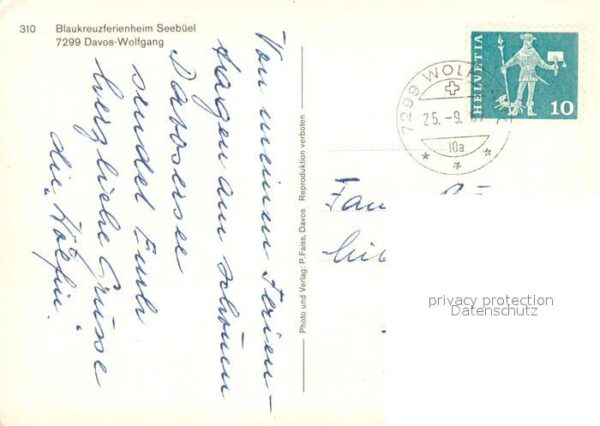 310 Blaukreuzferienheim Seebüel
7299 Davos-Wolfgang
Von meinen Ferien-
tagen am schönen
Davosersee
sendet Euch
herzliche Grüsse
die
Photo und Verlag: P. Faiss, Davos Reproduktion verboten
HELVETIA
10
7299 WOLF
25.-9.
10a
Fam
privacy protection
Datenschutz